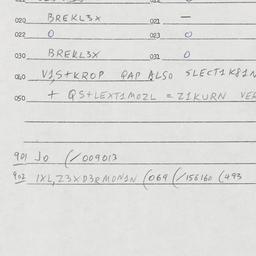 020 BREKL3X 021 —
022 O 023 O
030 BREKL3X 031 O
040 V1S+KROP QAP ALSO SLECT1K81N
050 + QS+LEXT1MOZL = Z1KURN VER
901 Jo (/009013
902 1XL,Z3XD3RMON1N (069 (/156160 (493